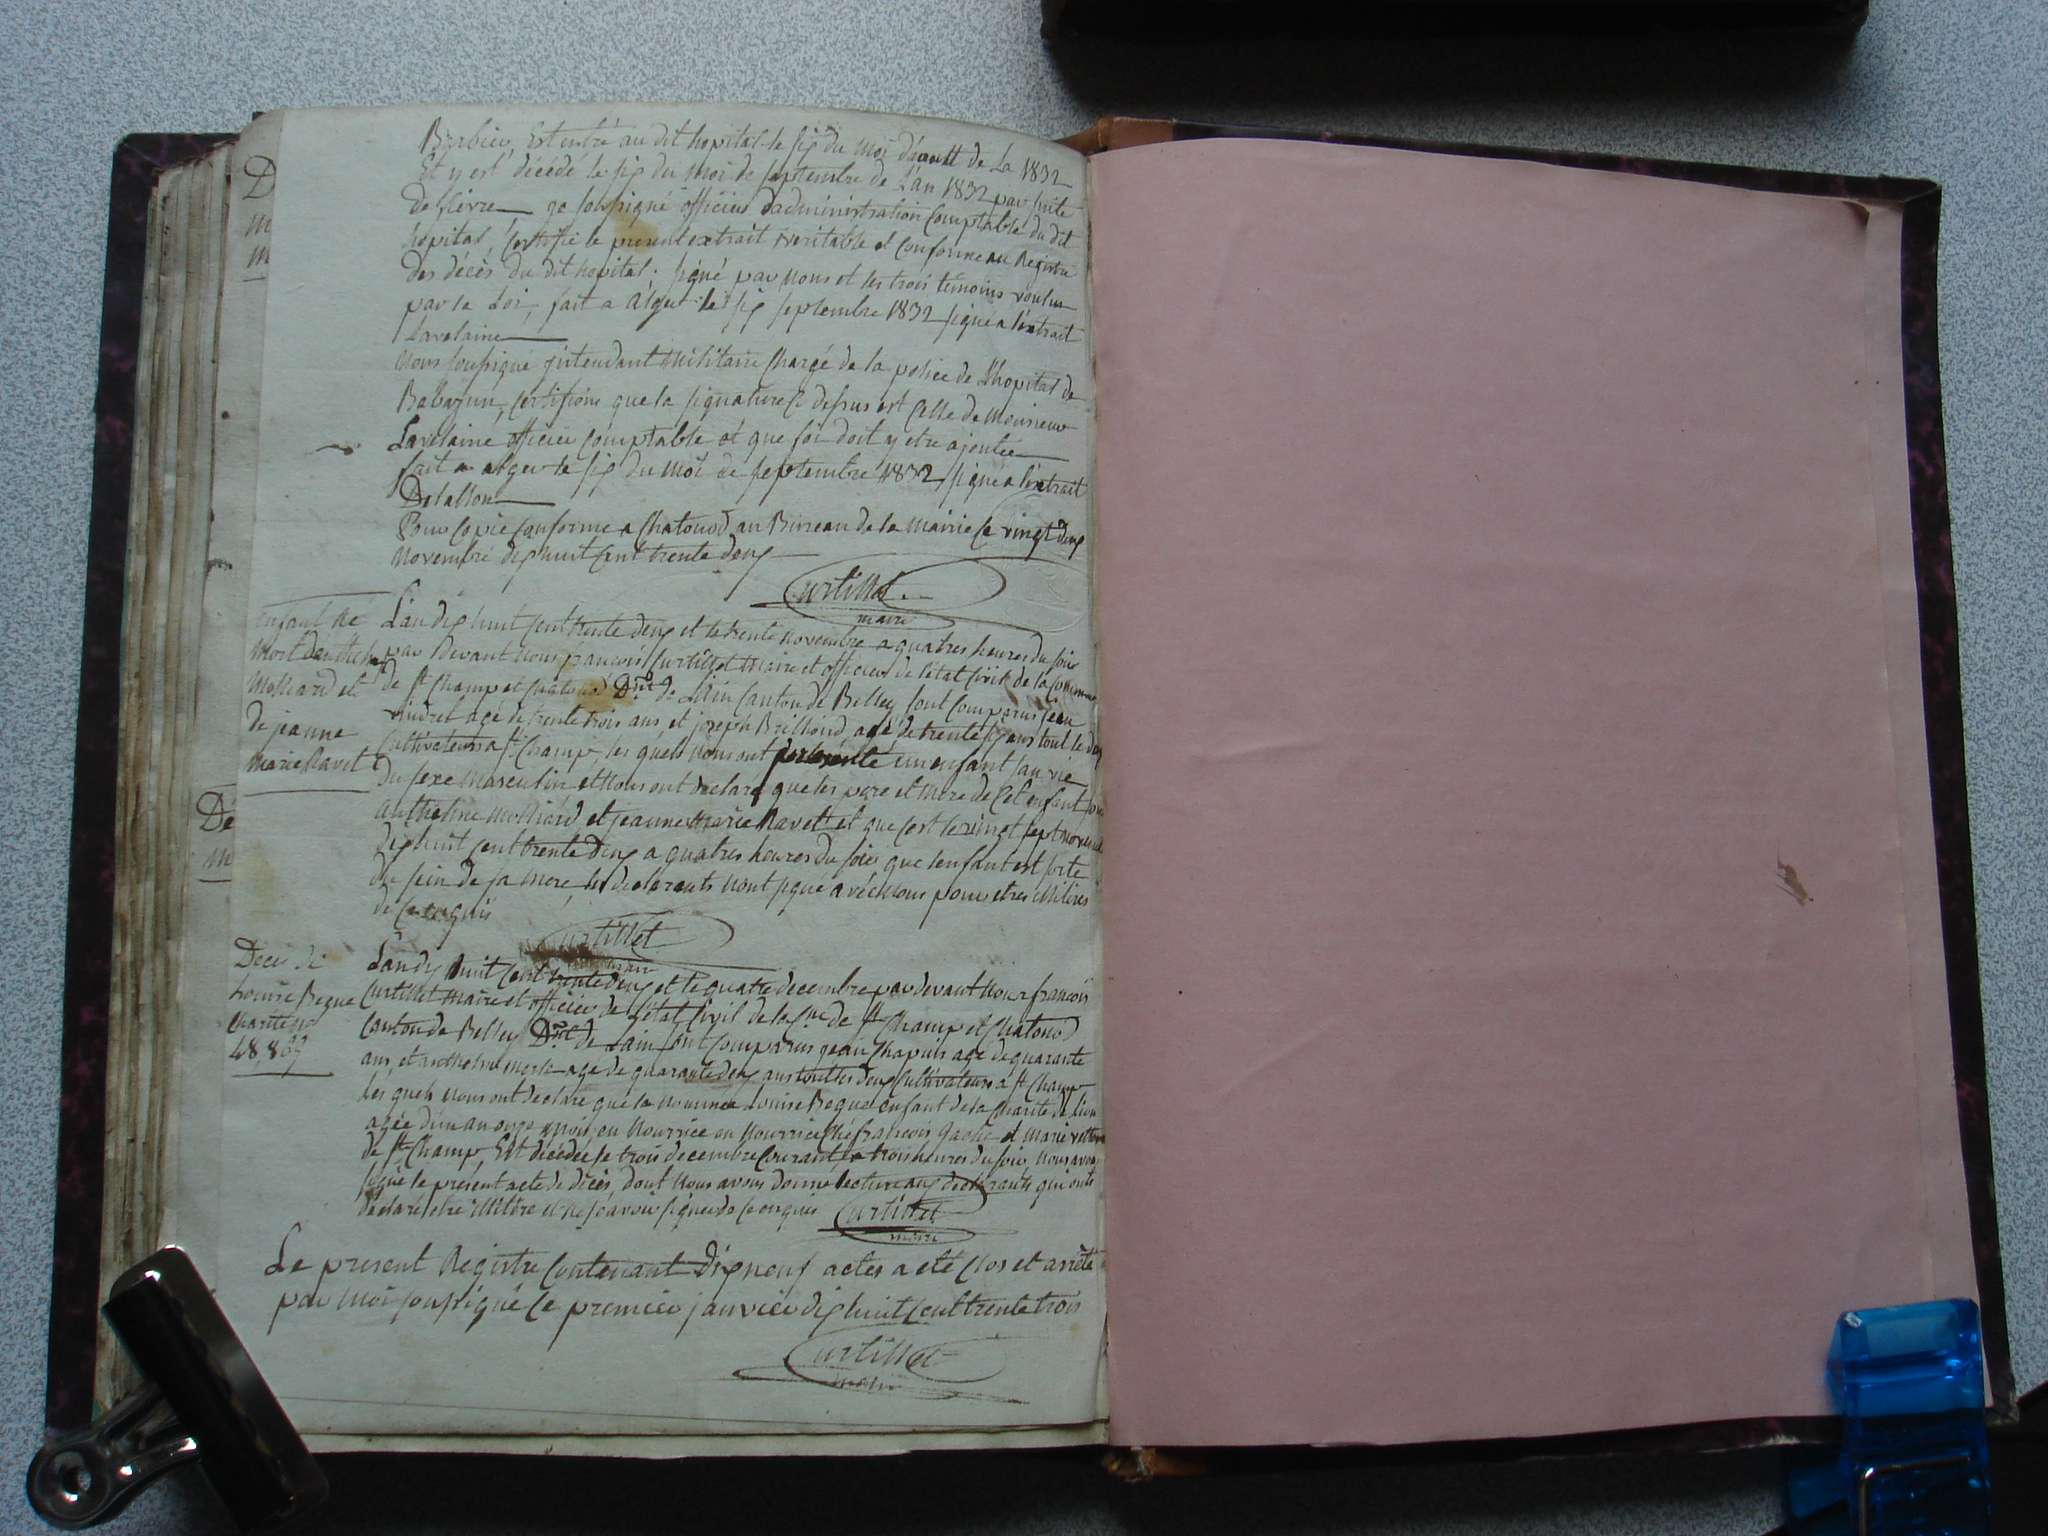 Barbier, Est entré au dit hopital le six du moi d'auutt de La 1832
Et y est décédé le six du moi de septembre de L'an 1832 par suite
de fièvre je soussigné officier d'administration Comptable du dit
hopital, Certifie le present extrait veritable et conforme au Registre
des décès du dit hopital. signé par nous et les trois témoins voulus
par la Loi, fait a Alger le six septembre 1832 signé a l'extrait
Lavelaine
Nous soussigné jntendant Militaire Chargé de la police de L'hopital de
Babazun, Certifions que la signature Ci dessus est Celle de Monsieur
Lavelaine officier Comptable et que foi doit y etre ajoutée
fait a alger le six du moi de septembre 1832 signé a l'extrait
Delallon
Pour Copie Conforme a Chatonod au Bureau de la Mairie Ce vingt deux
Novembre dix huit Cent trente deux
Curtillet
maire
enfant né
Mort d'anthelme
Molliard et
de jeanne
Marie Ravet
L'an dix huit Cent trente deux et le trente Novembre a quatres heures du soir
par Devant Nous francois Curtillet Maire et officier de l'état Civil de la Commune
de St Champ et Chatonod Dmt de L'ain Canton de Belley sont Comparus jean
agé de trente trois ans, et joseph Brillord agé de trente six ans tout le deux
Cultivateurs a St Champ, les quels Nous ont présenté un enfant san vie
Du sexe Masculin et Nous ont declaré que les pere et Mere de Cet enfant sont
anthelme Molliard et jeanne Marie Ravet et que C'est le vingt sept novembre
dix huit Cent trente deux a quatres heures du soir que l'enfant est sorte
du sein de sa Mere, les declarents n'ont signé avéc Nous pour etres illitires
de Ce enquis
Curtillet
maire
Décé de
Louise Beque
Charité No
L'an dix huit Cent trente deux et le quatre decembre par devant Nous francois
Curtillet Maire et officier de l'état Civil de la Cne de St Champ et Chatonod
Canton de Belley Dmt de Lain sont Comparus jean Chapuis agé de quarante
ans, et anthelme agé de quarante deux ans tout les deux Cultivateurs a St Champ
les quels Nous ont declaré que la Nommée Louise Beque enfant de la Charité de Lion
agée d'un an onze Mois, en Nourrice en Nourrice ché francois et Marie
de St Champ, Est décédée le trois decembre Courant, a trois heures du soir, Nous avons
signé le present acte de décès, dont Nous avons donné lecture aux declarants qui ont
declaré etre illitire et ne savoir signé de Ce enquis Curtillet
maire
Le present Registre Contenant dix neuf actes a eté Clos et arrêté
par Moi soussigné Ce premier janvier dix huit Cent trente trois
Curtillet
maire